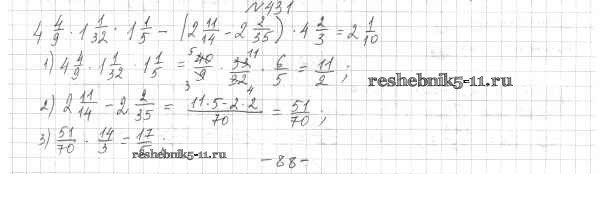 №431
4 4/9 · 1 1/32 · 1 1/5 − (2 11/14 − 2 2/35) · 4 2/3 = 2 1/10
1) 4 4/9 · 1 1/32 · 1 1/5 = 40/9 · 33/32 · 6/5 = 11/2 ;
reshebnik5-11.ru
2) 2 11/14 − 2 2/35 = (11·5−2·2)/70 = 51/70 ;
3) 51/70 · 14/3 = 17/5 ;
reshebnik5-11.ru
−88−